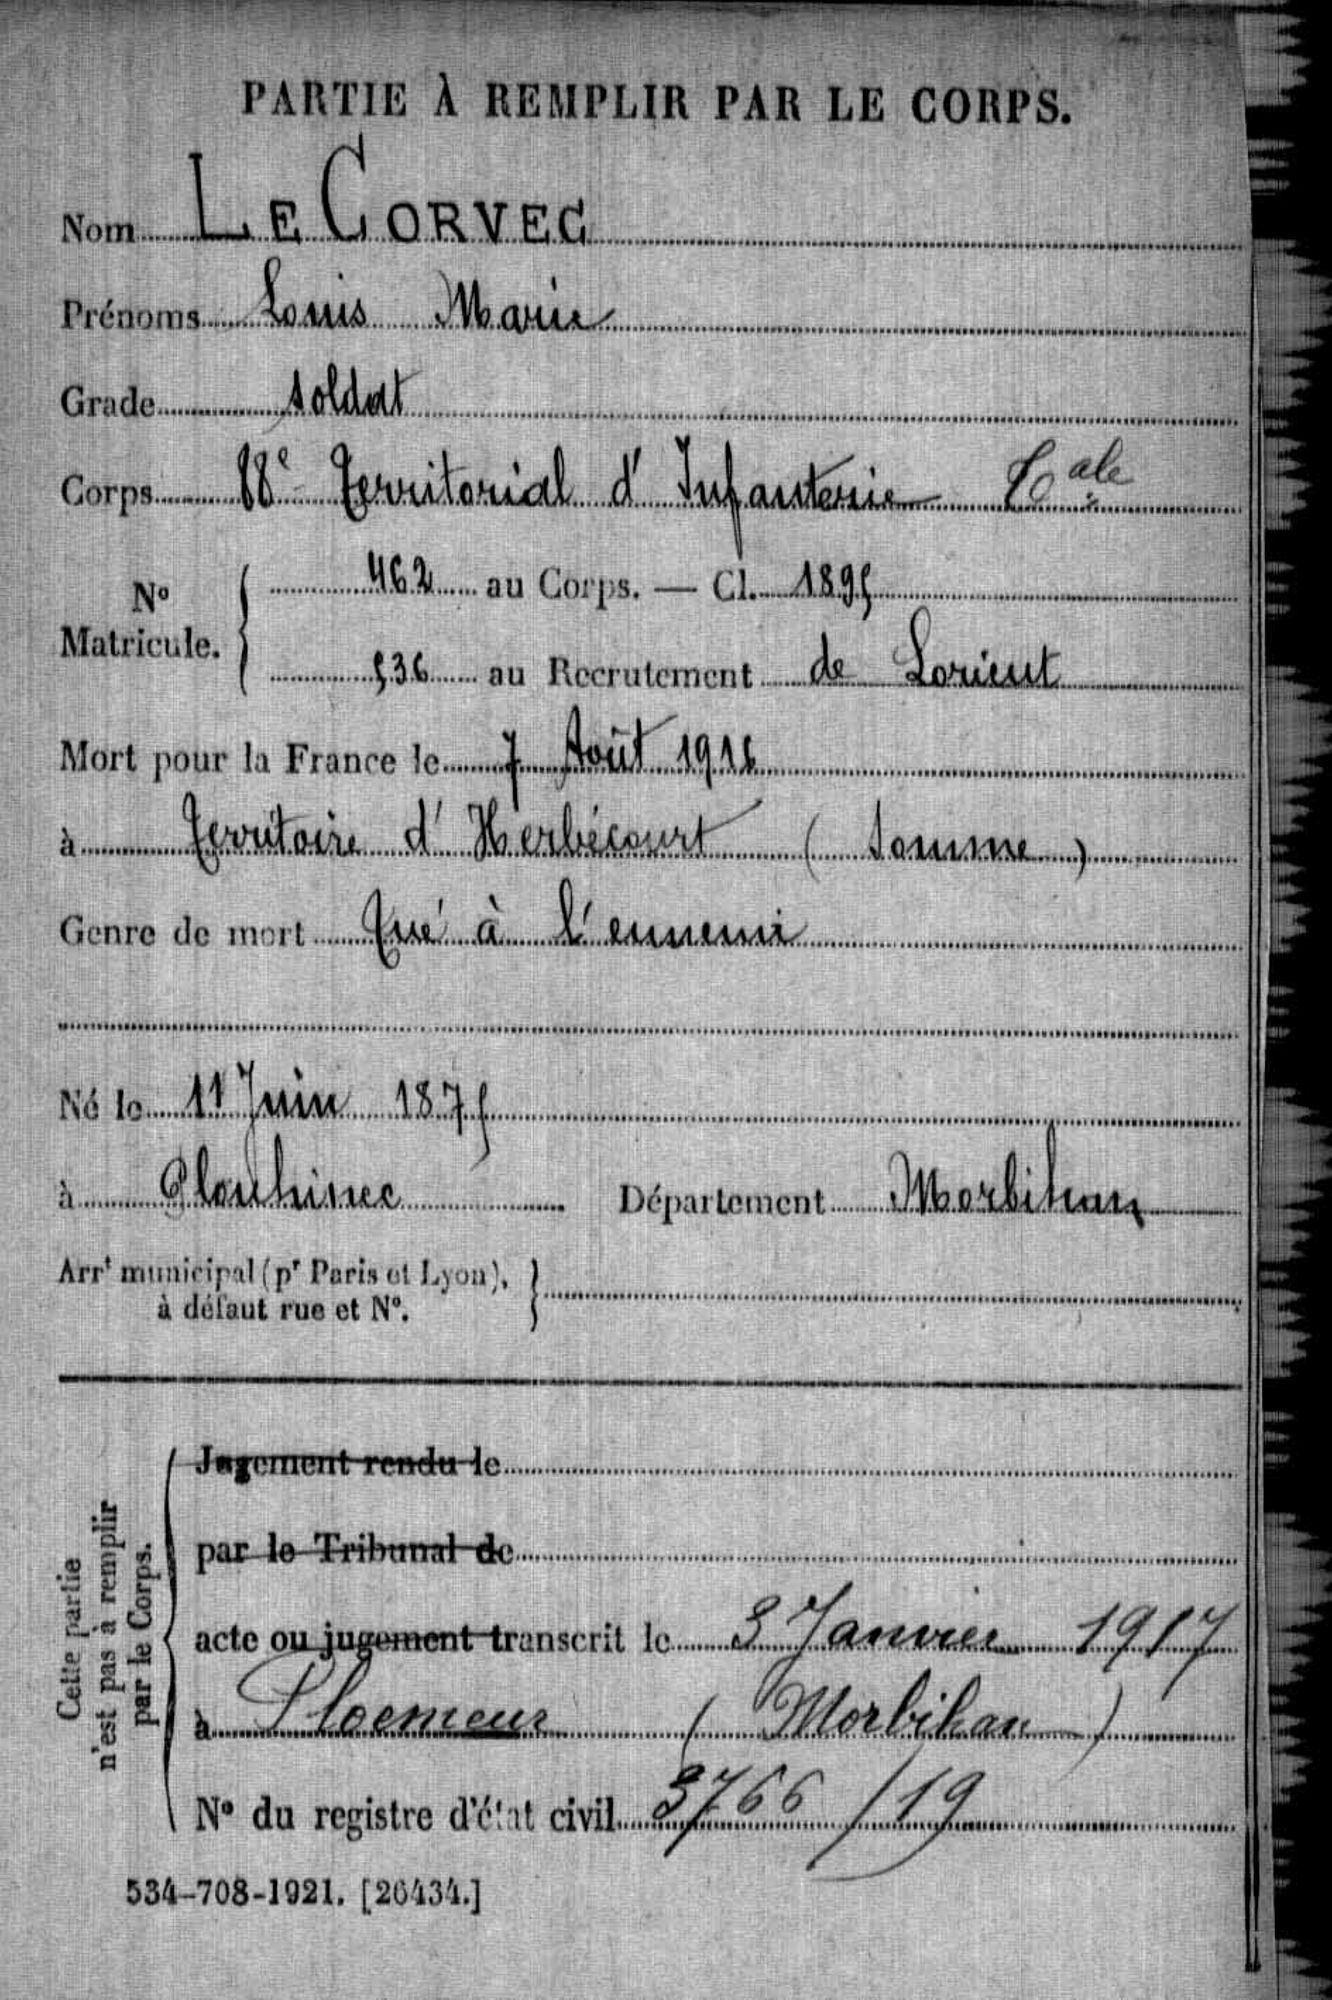 PARTIE À REMPLIR PAR LE CORPS.
Nom LE CORVEC
Prénoms Louis Marie
Grade soldat
Corps 88e Territorial d'Infanterie Cale
No Matricule. 462 au Corps. — Cl. 1895
536 au Recrutement de Lorient
Mort pour la France le 7 Août 1916
à Territoire d'Herbécourt (Somme)
Genre de mort Tué à l'ennemi
Né le 11 Juin 1875
à Plouhinec Département Morbihan
Arrt municipal (pr Paris et Lyon),
à défaut rue et No.
Cette partie
n'est pas à remplir
par le Corps.
Jugement rendu le
par le Tribunal de
acte ou jugement transcrit le 3 Janvier 1917
à Ploemeur (Morbihan)
No du registre d'état civil 3766/19
534-708-1921. [26434.]